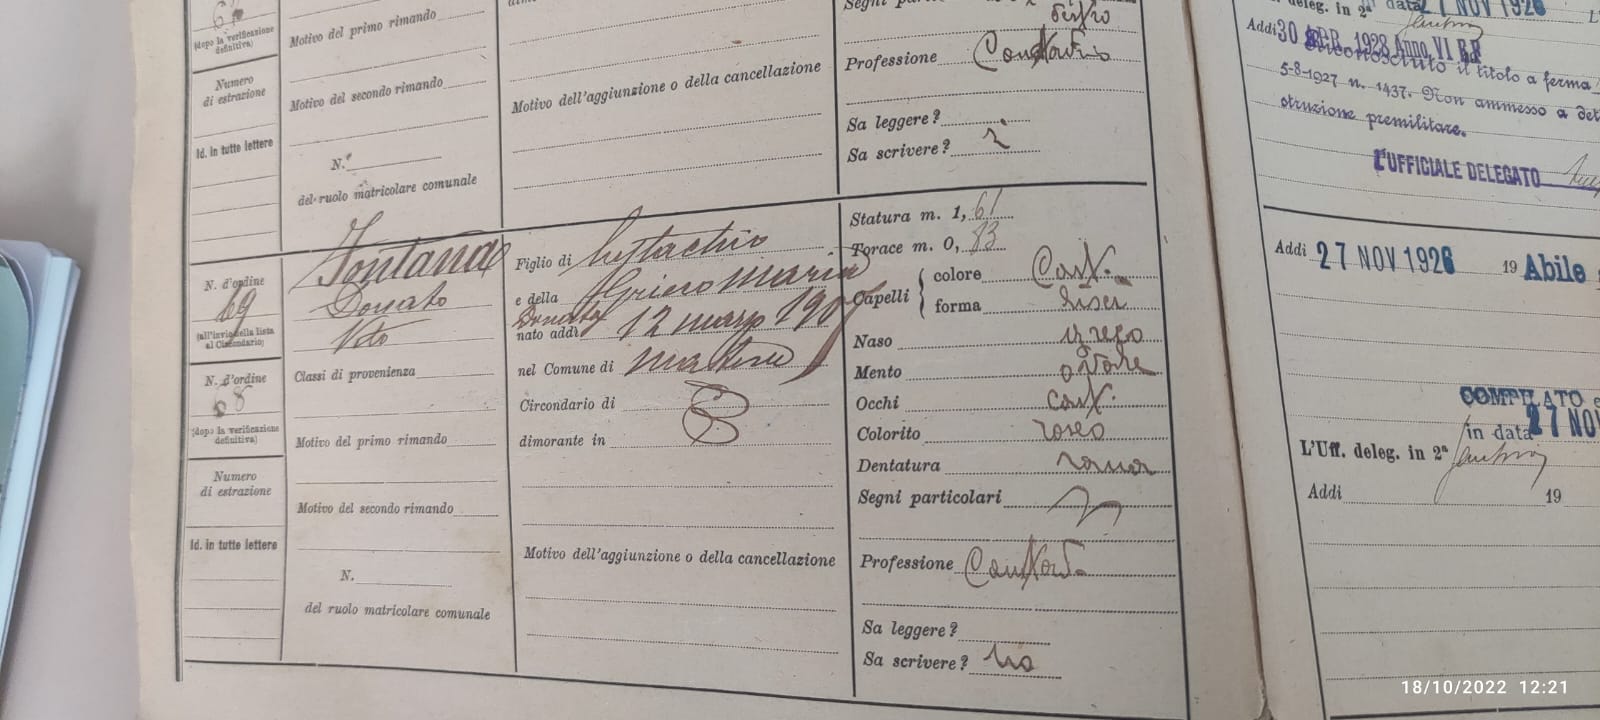 (dopo la verificazione
definitiva)
Numero
di estrazione
Id. in tutte lettere
Motivo del primo rimando
Motivo del secondo rimando
N.
del ruolo matricolare comunale
Motivo dell'aggiunzione o della cancellazione
Segni particolari
Professione Contadino
Sa leggere?
Sa scrivere? si
N. d'ordine
69
(all'invio della lista
al Circondario)
N. d'ordine
68
(dopo la verificazione
definitiva)
Numero
di estrazione
Id. in tutte lettere
Fontana
Donato
Vito
Classi di provenienza
Motivo del primo rimando
Motivo del secondo rimando
N.
del ruolo matricolare comunale
Figlio di Eustachio
e della Grieco Maria
Donata
nato addì 12 marzo 190
nel Comune di Matera
Circondario di
dimorante in
Motivo dell'aggiunzione o della cancellazione
Statura m. 1, 61
Torace m. 0, 83
Capelli
colore Cast.
forma lisci
Naso greco
Mento ovale
Occhi cast.
Colorito roseo
Dentatura sana
Segni particolari
Professione Contad.
Sa leggere?
Sa scrivere? no
deleg. in 2ª data 27 NOV 1926
Addi 30 APR. 1928 Anno VI E.F.
Riconosciuto il titolo a ferma
5-8-1927 n. 1437. Non ammesso a
struzione premilitare.
L'UFFICIALE DELEGATO
Addi 27 NOV 1926 19 Abile
COMPILATO
in data 27 NOV
L'Uff. deleg. in 2ª
Addi 19
18/10/2022 12:21